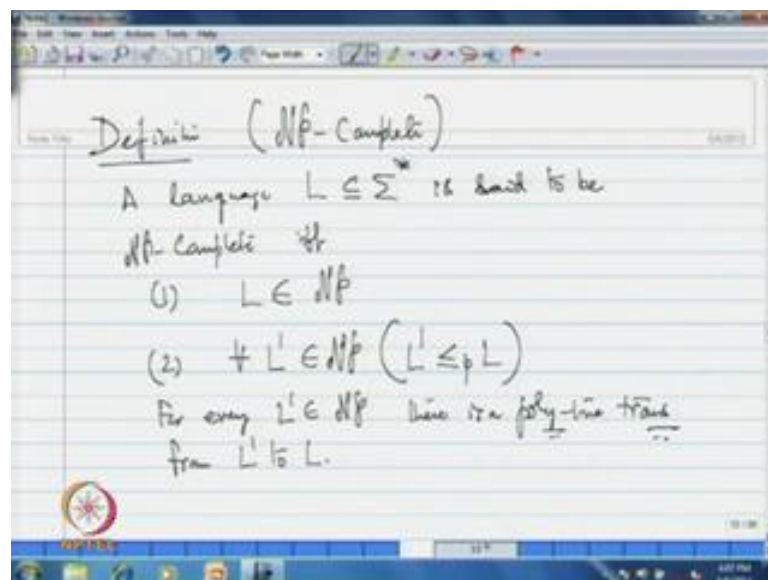 Definiti (NP-Complete)
A language L ⊆ Σ* is said to be
NP-Complete iff
(1) L ∈ NP
(2) ∀ L' ∈ NP (L' ≤p L)
For every L' ∈ NP there is a poly-time trans
from L' to L.
NPTEL